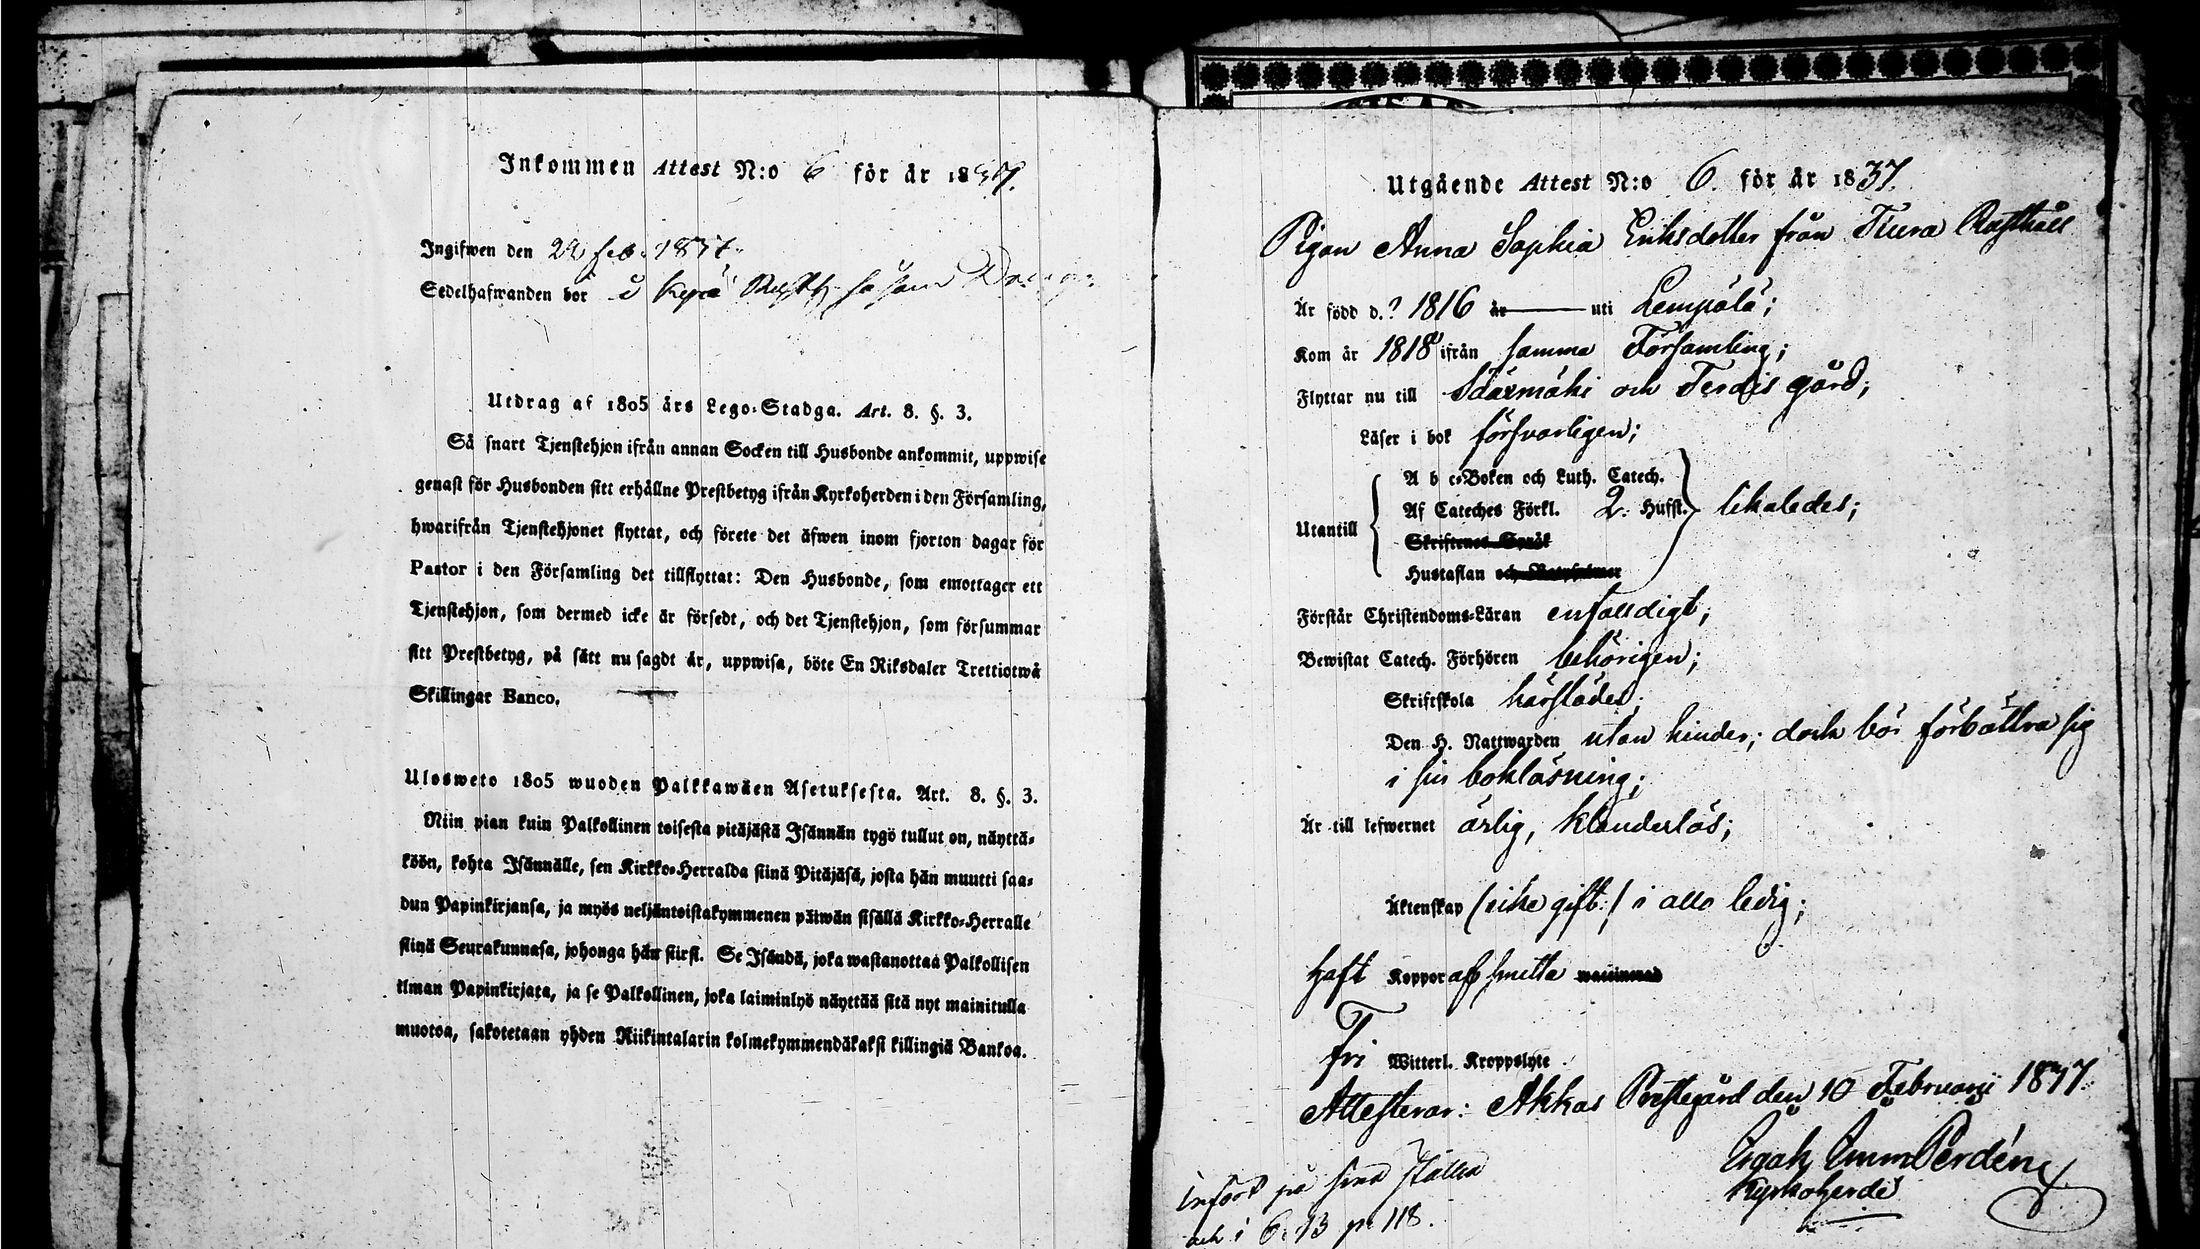 Inkommen Attest N:o 6 för år 1837.
Ingifwen den 22 feb. 1837.
Sedelhafwanden bor i Kyrö
Utdrag af 1805 års Lego-Stadga. Art. 8. §. 3.
Så snart Tjenstehjon ifrån annan Socken till Husbonde ankommit, uppwise
genast för Husbonden sitt erhållne Prestbetyg ifrån Kyrkoherden i den Församling,
hwarifrån Tjenstehjonet flyttat, och förete det äfwen inom fjorton dagar för
Pastor i den Församling det tillflyttat: Den Husbonde, som emottager ett
Tjenstehjon, som dermed icke är försedt, och det Tjenstehjon, som försummar
sitt Prestbetyg, på sätt nu sagdt är, uppwisa, böte En Riksdaler Trettiotwå
Skillingar Banco.
Ulosweto 1805 wuoden Palkkawäen Asetuksesta. Art. 8. §. 3.
Niin pian kuin Palkollinen toisesta pitäjästä Isännän tygö tullut on, näyttä-
köön, kohta Isännälle, sen Kirkko-Herralda siinä Pitäjäsä, josta hän muutti saa-
dun Papinkirjansa, ja myös neljäntoistakymmenen päiwän sisällä Kirkko-Herralle
siinä Seurakunnasa, johonga hän siirsi. Se Isändä, joka wastanottaa Palkollisen
ilman Papinkirjata, ja se Palkollinen, joka laiminlyö näyttää sitä nyt mainitulla
muotoa, sakotetaan yhden Riikintalarin kolmekymmendäkaksi killingiä Bankoa.
Utgående Attest N:o 6. för år 1837.
Pigan Anna Sophia Eriksdotter från
Är född d. ? 1816 år uti Lempälä;
Kom år 1818 ifrån samma Församling;
Flyttar nu till Sääxmäki och gård;
Läser i bok försvarligen;
A b c-Boken och Luth. Catech.
Utantill Af Cateches Förkl. 2. Hufst. likaledes;
Skriftenes Språk
Hustaflan och
Förstår Christendoms-Läran enfalldigt;
Bewistat Catech. Förhören behörigen;
Skriftskola härstädes;
Den H. Nattwarden utan hinder; dock bör förbättra sig
i sin bokläsning;
Är till lefwernet ärlig, klanderlös;
Äktenskap (icke gift:) i allo ledig;
Haft Koppor af smitta
Fri Witterl. Kroppslyte
Attesterar: Akkas Prestegård den 10 Februarii 1837.
Emm Perdén
Kyrkoherde
Infördt på sina ställen
och i C. B p. 118.